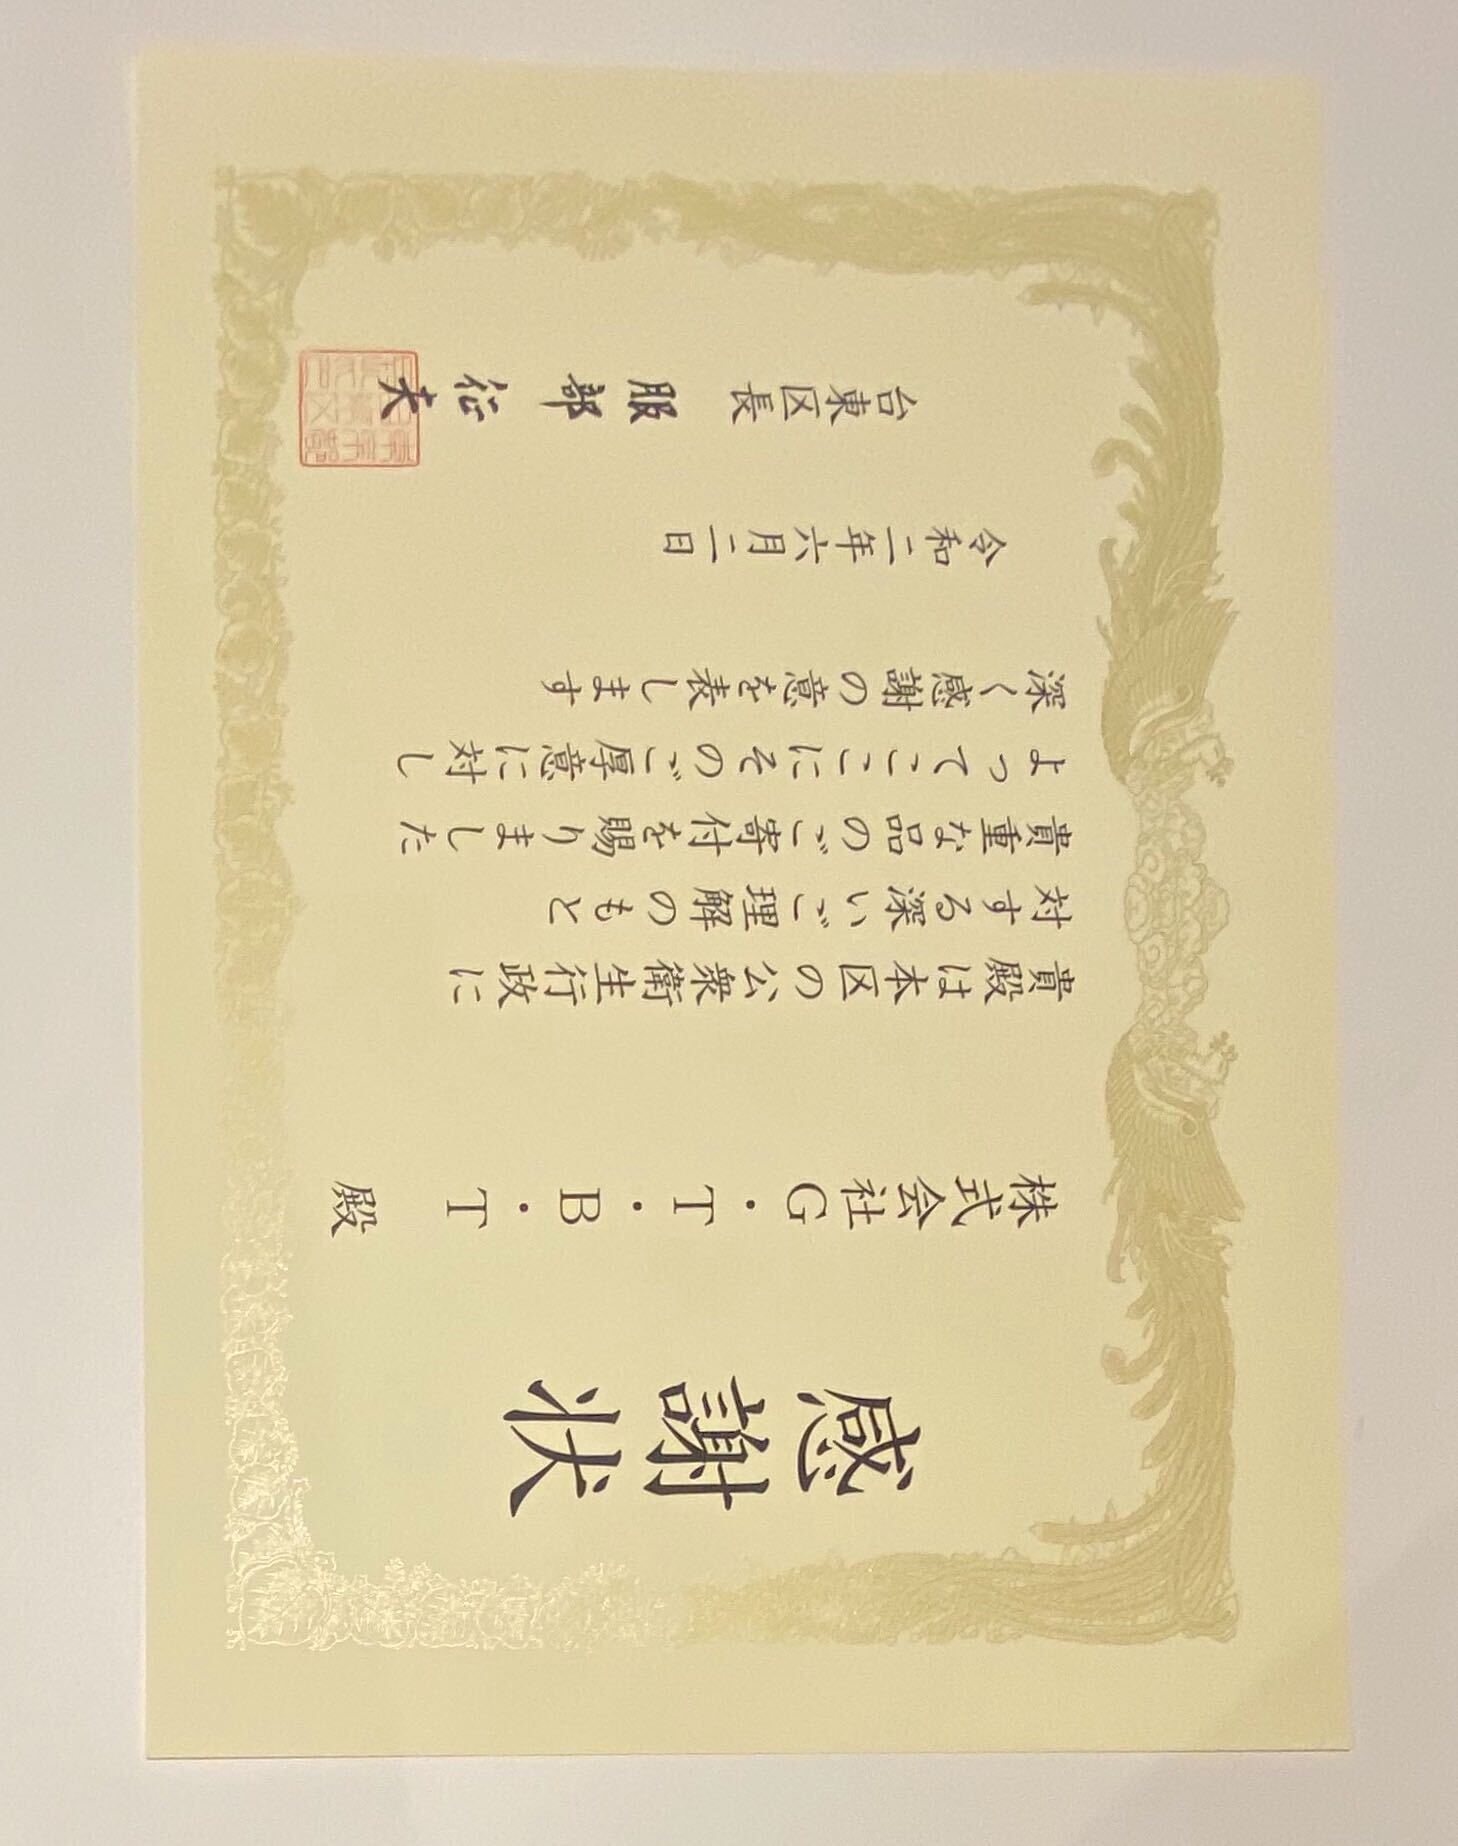 感謝状
株式会社G・T・B・T 殿
貴殿は本区の公衆衛生行政に
対する深いご理解のもと
貴重な品のご寄付を賜りました
よってここにそのご厚意に対し
深く感謝の意を表します
令和二年六月二日
台東区長 服部征夫